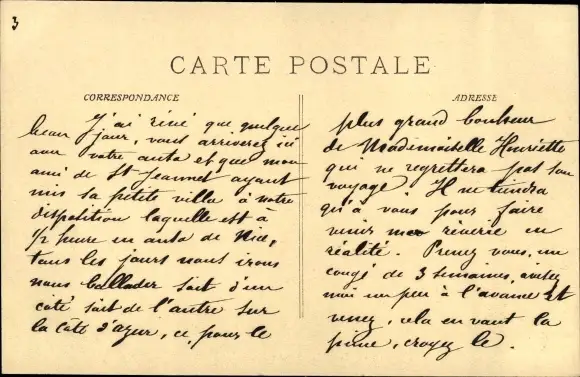 3
CARTE POSTALE
CORRESPONDANCE
J'ai rêvé que quelque
beau jour, vous arriverez ici
avec votre auto et que mon
ami de St-Jeannet ayant
mis sa petite villa à notre
disposition laquelle est à
1/2 heure en auto de Nice,
tous les jours nous irons
nous ballader soit d'un
côté soit de l'autre sur
la Côte d'azur, ce, pour le
ADRESSE
plus grand bonheur
de Mademoiselle Henriette
qui ne regrettera pas son
voyage. Il ne tiendra
qu'à vous pour faire
venir ma rêverie en
réalité. Prenez vous, un
congé de 3 semaines, avisez
moi un peu à l'avance et
venez, cela en vaut la
peine, croyez le.